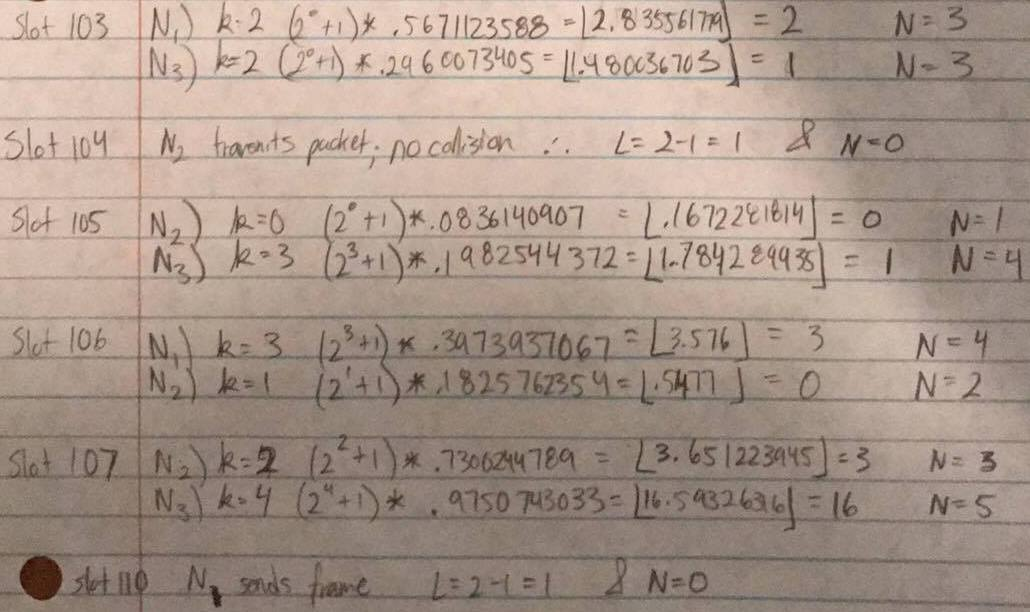 Slot 103 N₁) k=2 (2⁰+1)* .5671123588 = ⌊2.835561779⌋ = 2 N=3
N₃) k=2 (2⁰+1)* .2960073405 = ⌊1.480036703⌋ = 1 N=3
Slot 104 N₂ transmits packet; no collision ∴ L=2-1=1 & N=0
Slot 105 N₂) k=0 (2⁰+1)* .0836140907 = ⌊.1672281814⌋ = 0 N=1
N₃) k=3 (2³+1)* .1982544372 = ⌊1.784289935⌋ = 1 N=4
Slot 106 N₁) k=3 (2³+1)* .3973937067 = ⌊3.576⌋ = 3 N=4
N₂) k=1 (2¹+1)* .1825762354 = ⌊.5477⌋ = 0 N=2
Slot 107 N₂) k=2 (2²+1)* .7306244789 = ⌊3.651223945⌋ = 3 N=3
N₃) k=4 (2⁴+1)* .9750743033 = ⌊16.59326316⌋ = 16 N=5
slot 110 N₁ sends frame L=2-1=1 & N=0